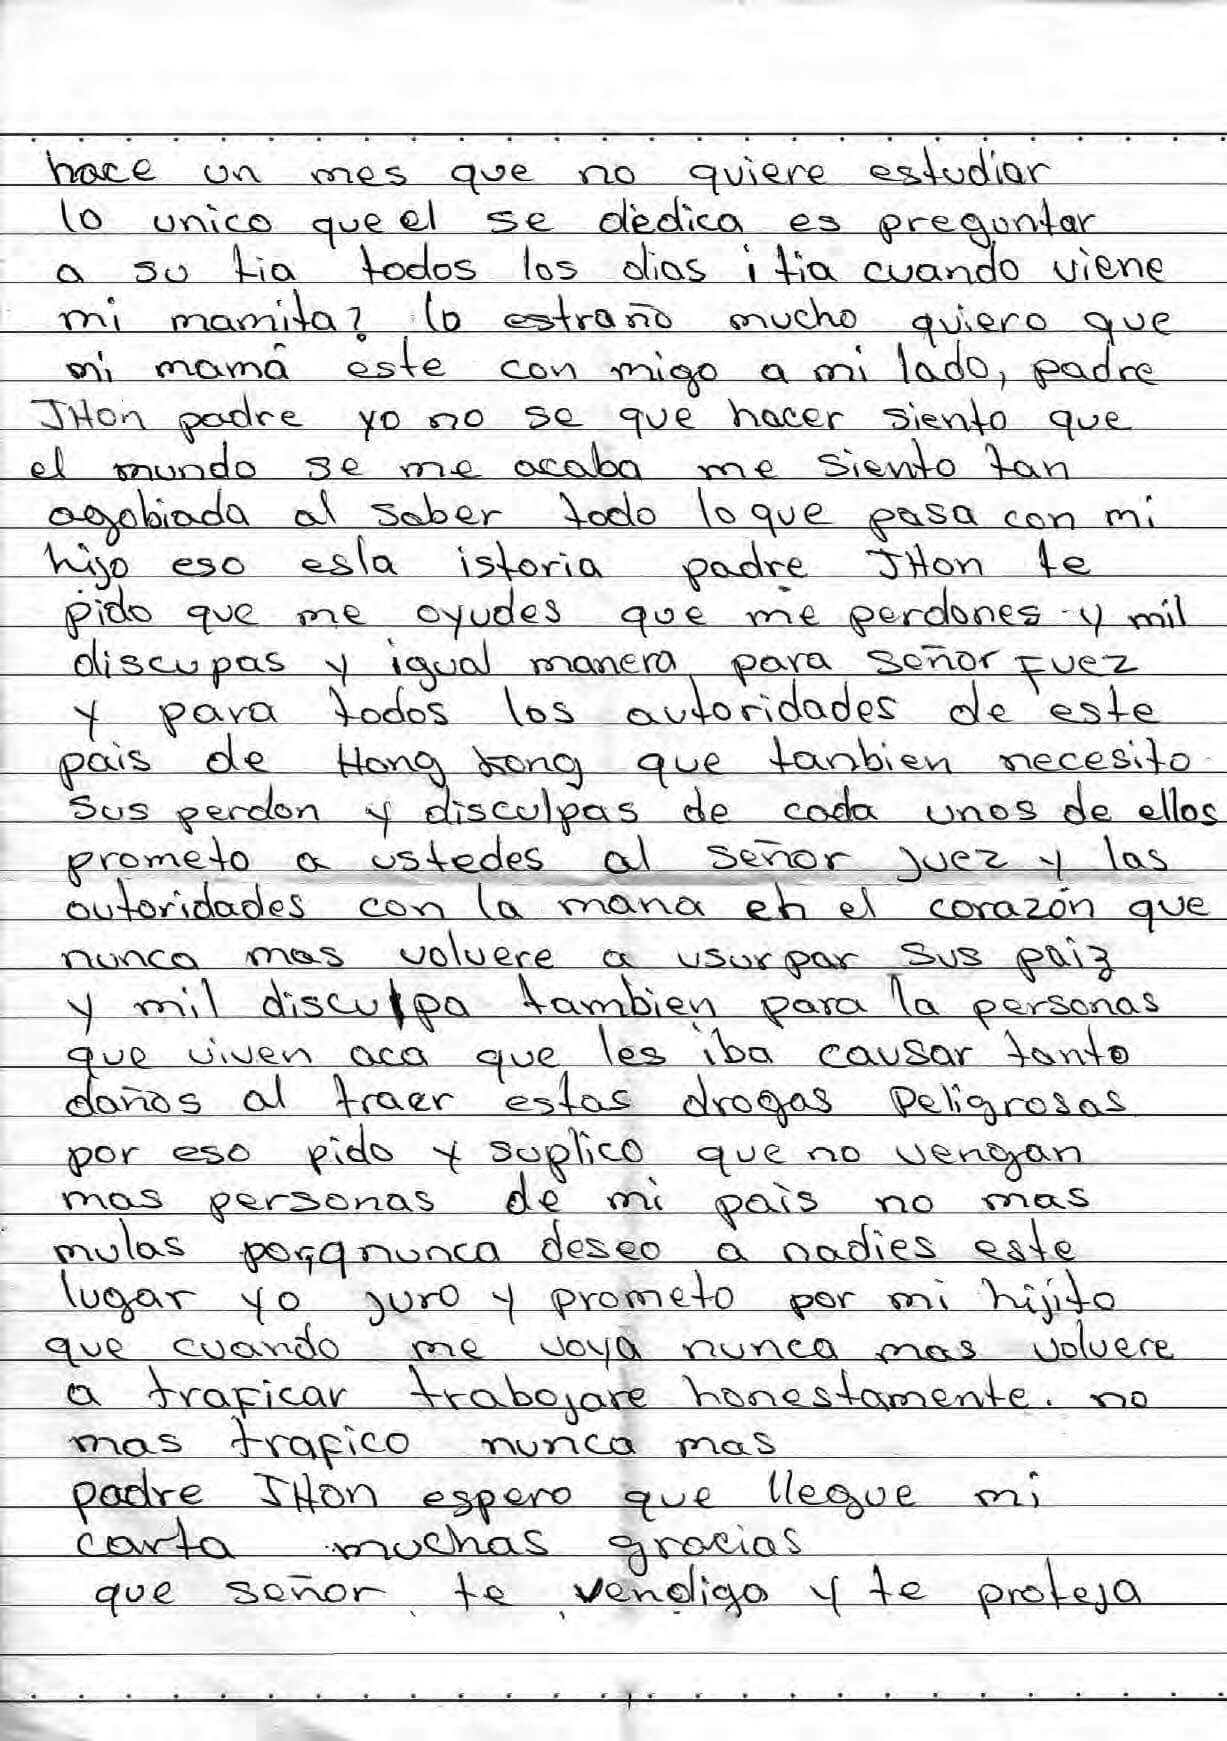 hace un mes que no quiere estudiar
lo unico que el se dedica es preguntar
a su tia todos los dias ¡ tia cuando viene
mi mamita? lo estraño mucho quiero que
mi mamá este con migo a mi lado, padre
JHon padre yo no se que hacer siento que
el mundo se me acaba me siento tan
agobiada al saber todo lo que pasa con mi
hijo eso esla istoria padre JHon te
pido que me ayudes que me perdones y mil
discupas y igual manera para señor Juez
y para todos los autoridades de este
pais de Hong kong que tanbien necesito
sus perdon y disculpas de cada unos de ellos
prometo a ustedes al señor juez y las
autoridades con la mana en el corazón que
nunca mas volvere a usurpar sus paiz
y mil disculpa tambien para la personas
que viven aca que les iba causar tanto
daños al traer estas drogas peligrosas
por eso pido y suplico que no vengan
mas personas de mi pais no mas
mulas porqnunca deseo a nadies este
lugar yo juro y prometo por mi hijito
que cuando me voya nunca mas volvere
a traficar trabajare honestamente. no
mas trafico nunca mas
padre JHon espero que llegue mi
carta muchas gracias
que señor te vendiga y te proteja